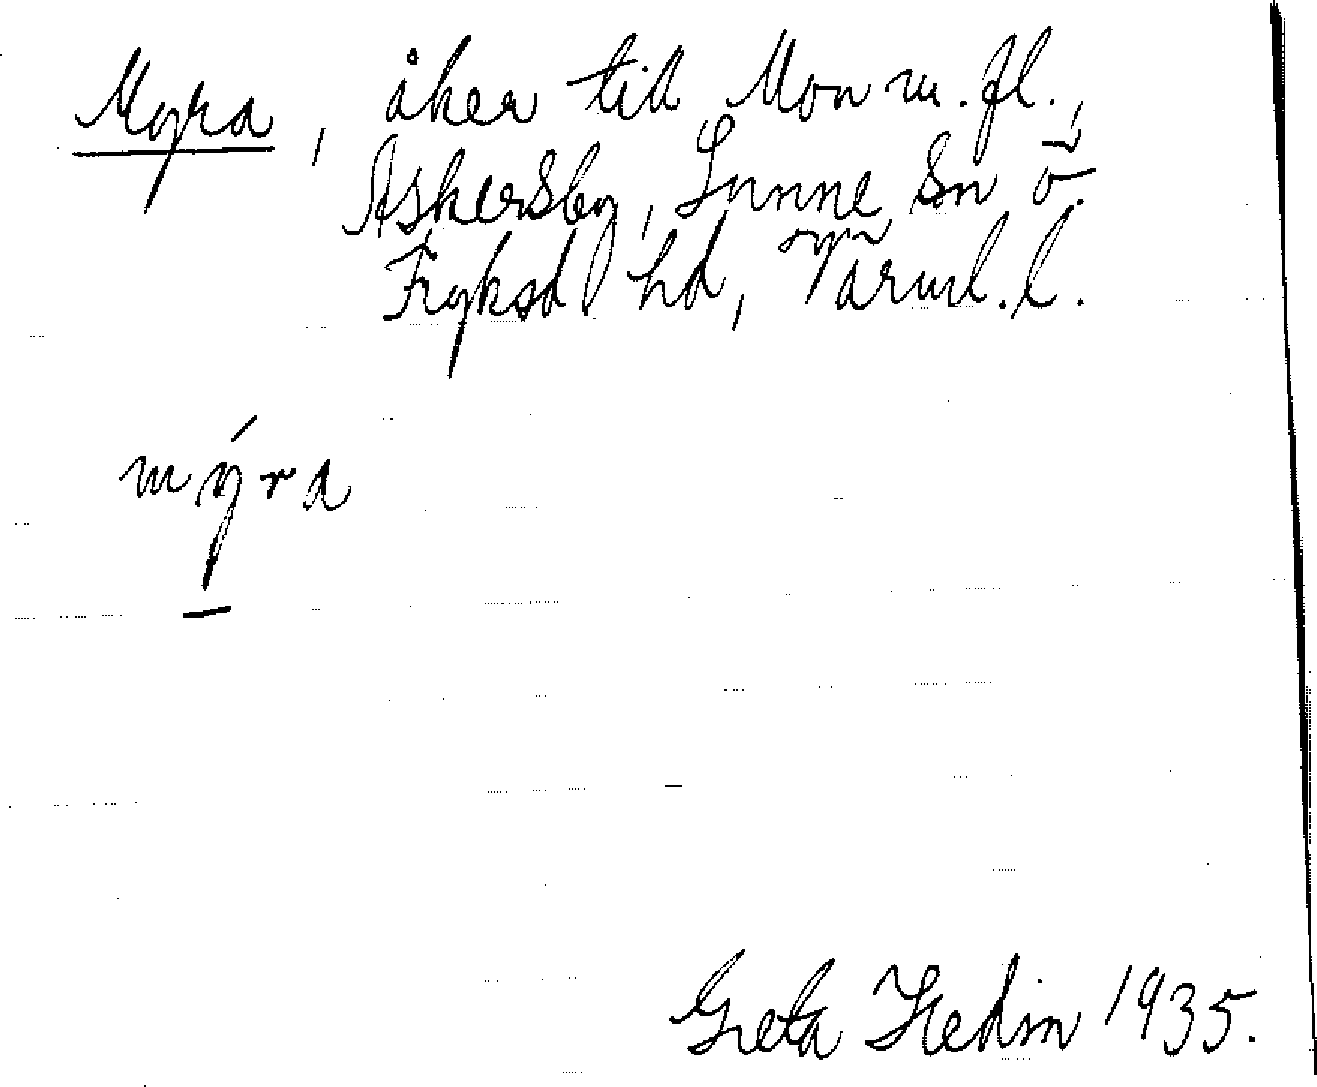 Myra, åker till Mon m. fl.,
Askersby, Sunne sn ö.
Fryksd hd, Värml. l.
mýra
Greta Hedin 1935.